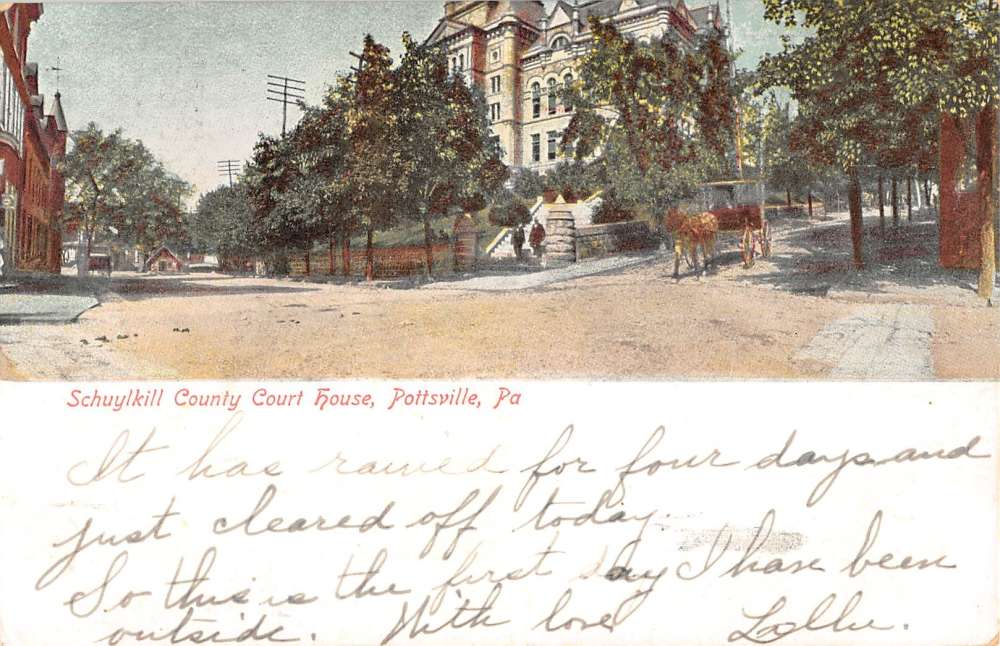 Schuylkill County Court House, Pottsville, Pa
It has rained for four days and
just cleared off today.
So this is the first day I have been
outside. With love Lollie.